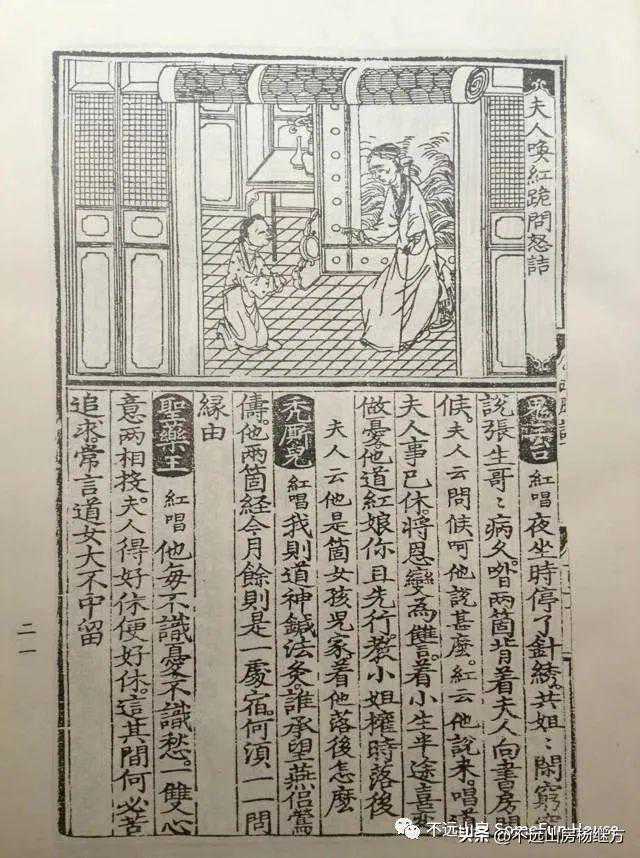 夫人喚紅跪問怒詰
鬼三台 紅唱 夜坐時停了針綉。共姐〻閑窮究
說張生哥〻病久。咱兩箇背着夫人向書房問
候。夫人云問候呵他說甚麼。紅云他說来。唱道
夫人事已休。將恩變為讐。着小生半途喜變
做憂。他道紅娘你且先行。教小姐權時落後
夫人云他是箇女孩兒家着他落後怎麼
禿厮兒 紅唱 我則道神鍼法灸。誰承望燕侣鶯
儔。他兩箇経今月餘則是一處宿。何湏一一問
縁由
聖藥王 紅唱 他每不識憂不識愁。一雙心
意兩相投。夫人得好休便好休。這其間何必苦
追求。常言道女大不中留
二一
头条 @不远山房杨继方